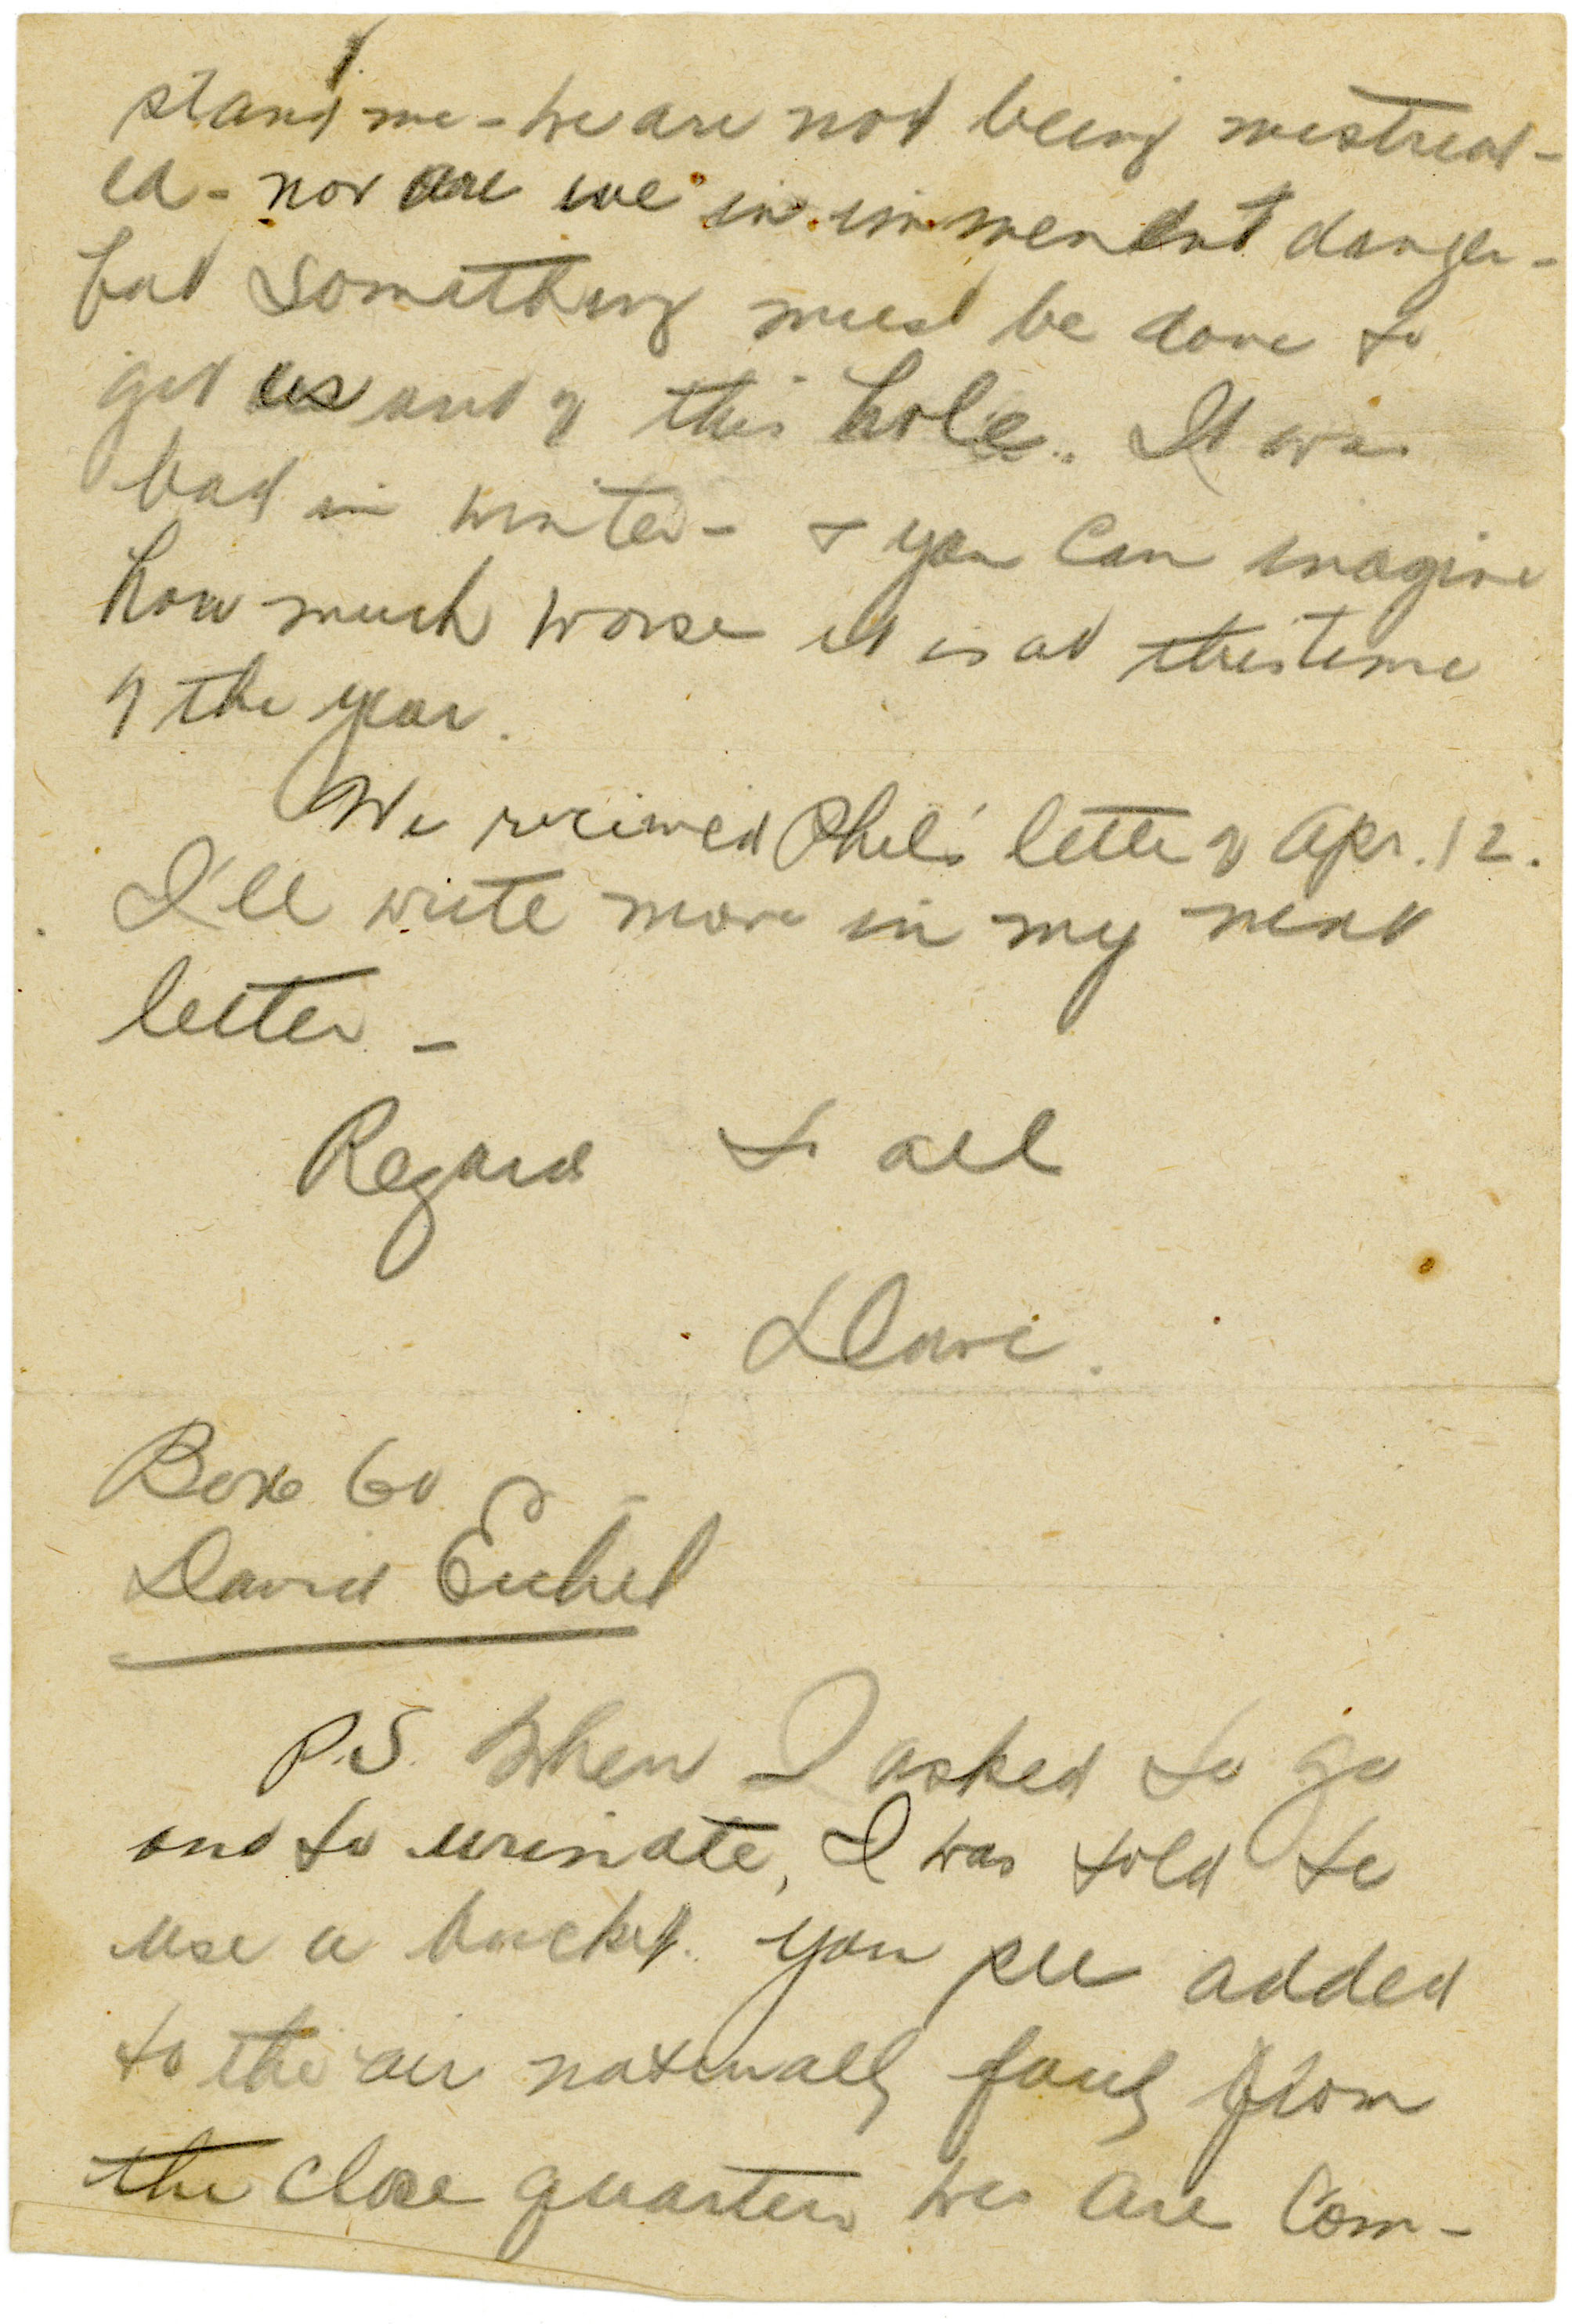 stand me - we are not being mistreat-
ed - nor are we in immenent danger -
but something must be done to
get us out of this hole. It was
bad in winter - & you can imagine
how much worse it is at this time
of the year.
We received Phil's letter of Apr. 12.
I'll write more in my next
letter -
Regard to all
Dave.
Box 60
David
P.S. When I asked to go
out to urinate, I was told to
use a bucket. You see added
to the air naturally foul from
the close quarters we are com-